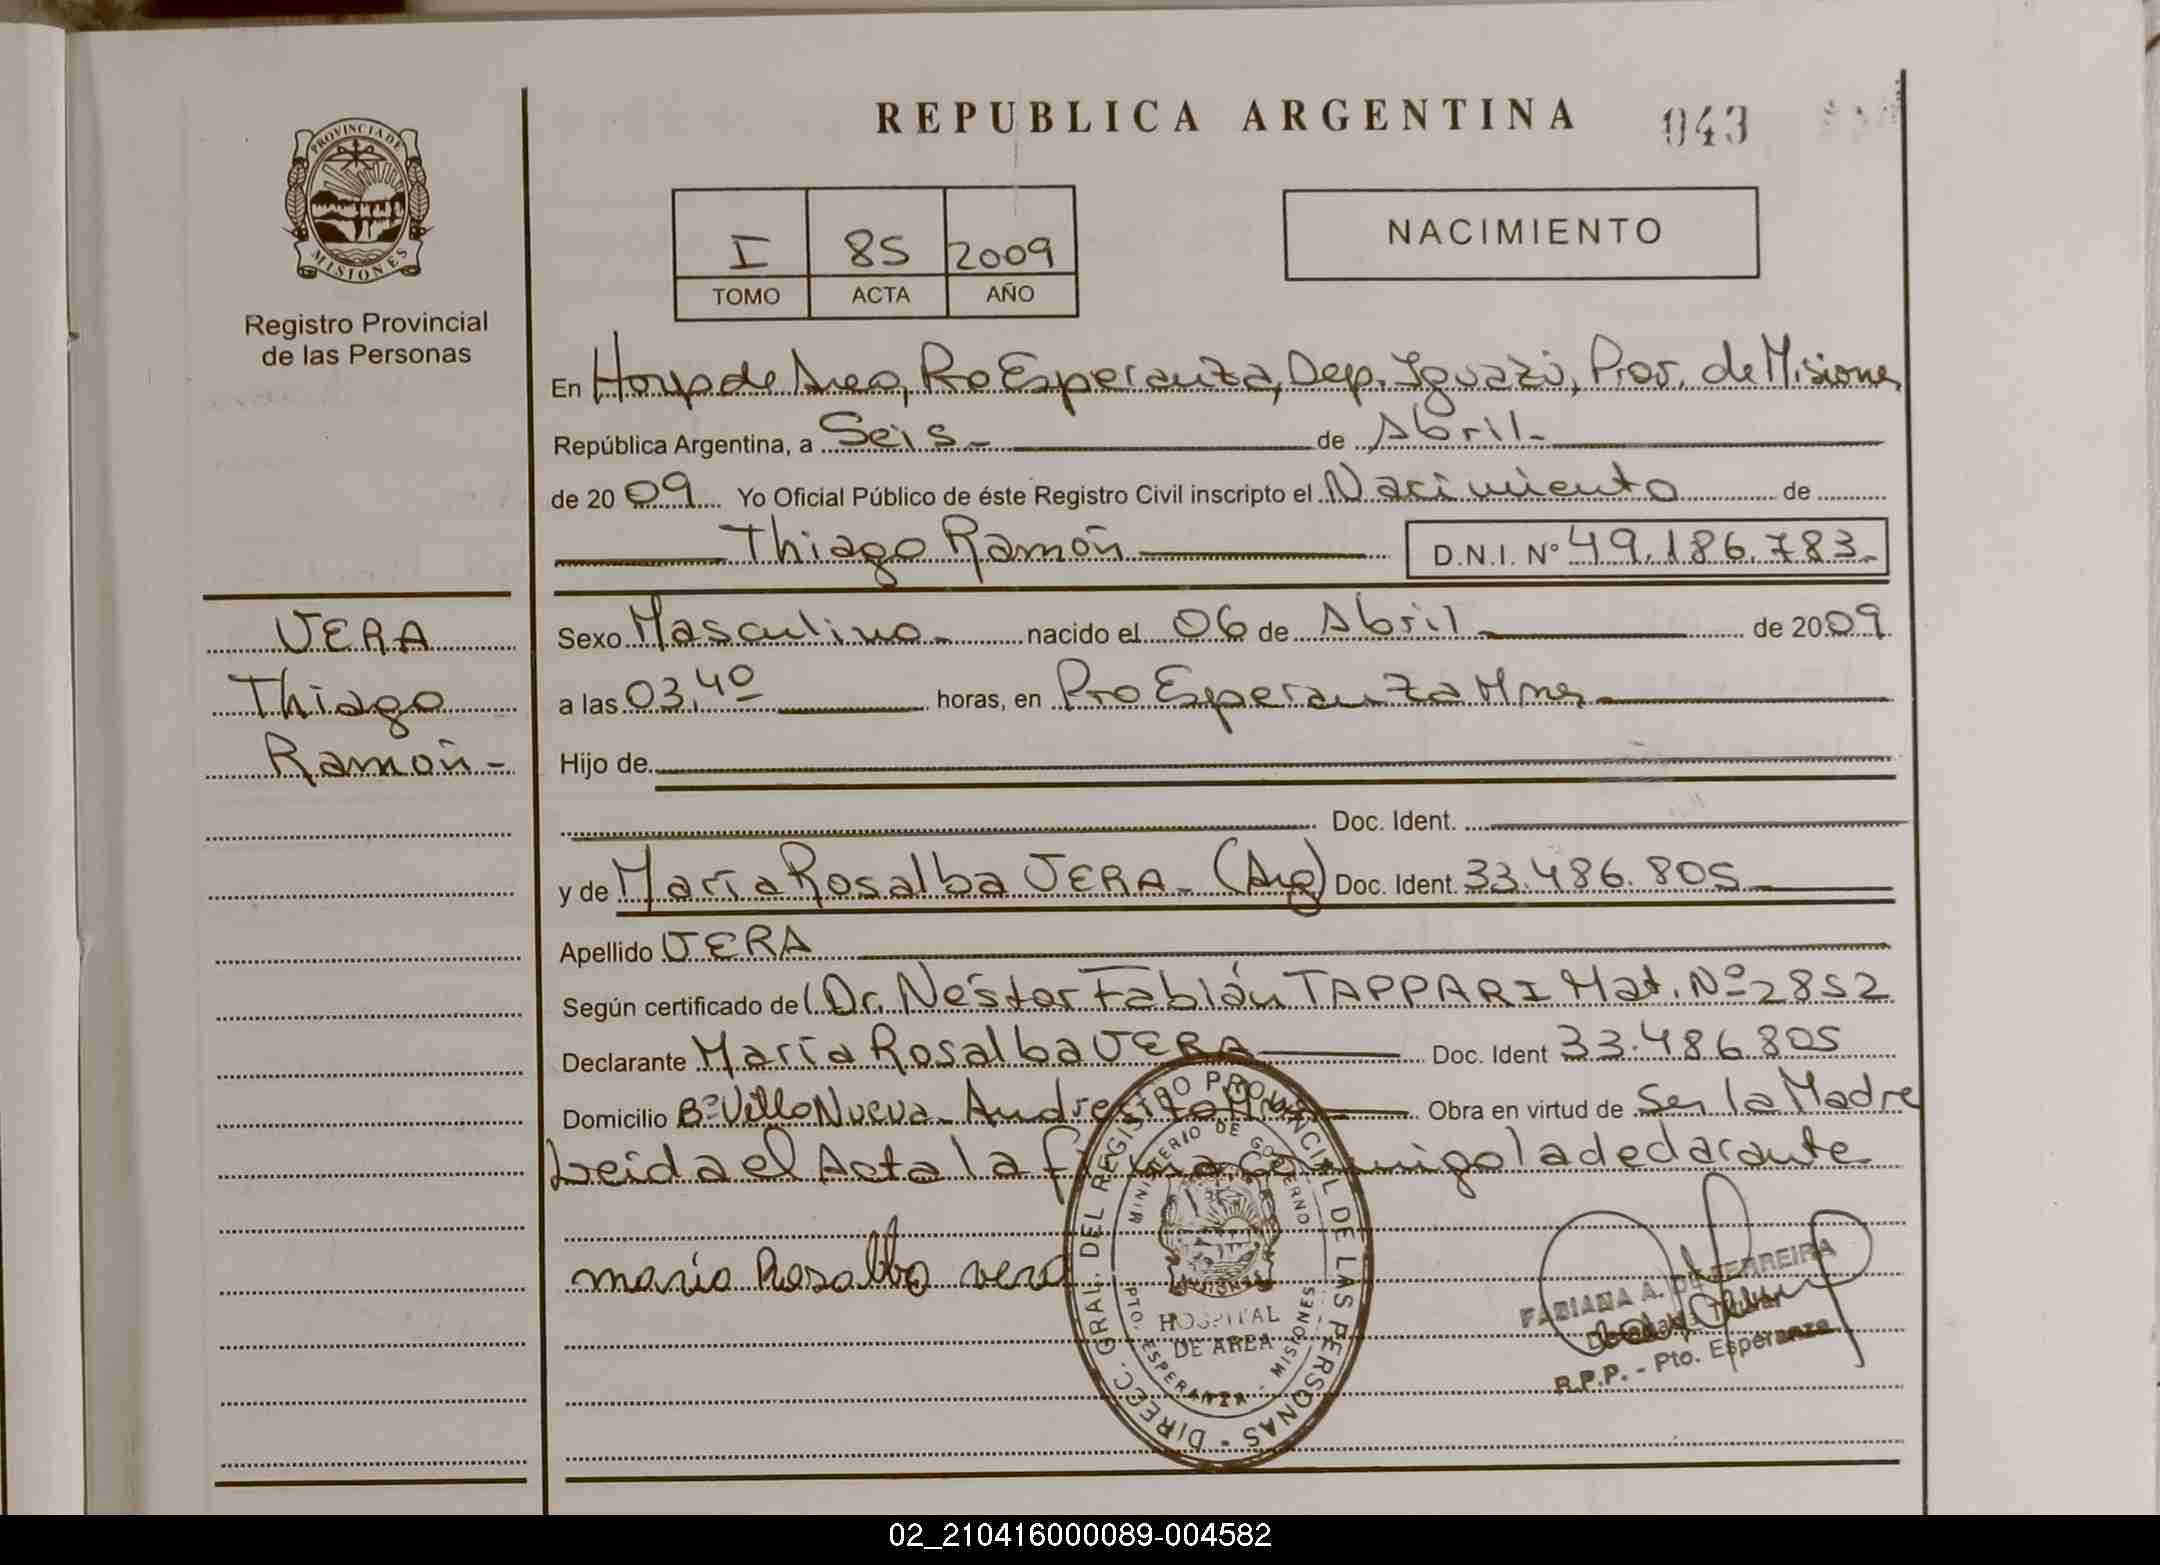 REPUBLICA ARGENTINA
043
PROVINCIA DE
MISIONES
Registro Provincial
de las Personas
I 85 2009
TOMO ACTA AÑO
NACIMIENTO
En Hosp de Area, Pto Esperanza, Dep. Iguazú, Prov. de Misiones
República Argentina, a Seis - de Abril -
de 2009 Yo Oficial Público de éste Registro Civil inscripto el Nacimiento de
Thiago Ramón D.N.I. N° 49.186.783-
VERA
Thiago
Ramón -
Sexo Masculino - nacido el 06 de Abril - de 2009
a las 03,40 horas, en Pto Esperanza Mnes -
Hijo de
Doc. Ident.
y de María Rosalba VERA - (Arg) Doc. Ident. 33.486.805
Apellido VERA
Según certificado de Dr. Néstor Fabián TAPPARI Mat. Nº 2852
Declarante María Rosalba VERA Doc. Ident 33.486.805
Domicilio Bº Villa Nueva - Obra en virtud de Ser la Madre
Leida el Acta la firma conmigo la declarante
maria Rosalba vera
DIREC. GRAL. DEL REGISTRO PROVINCIAL DE LAS PERSONAS -
MINISTERIO DE GOBIERNO
MISIONES
HOSPITAL
DE AREA
PTO. ESPERANZA - MISIONES
FABIANA A. DE FERREIRA
R.P.P. - Pto. Esperanza
02_210416000089-004582